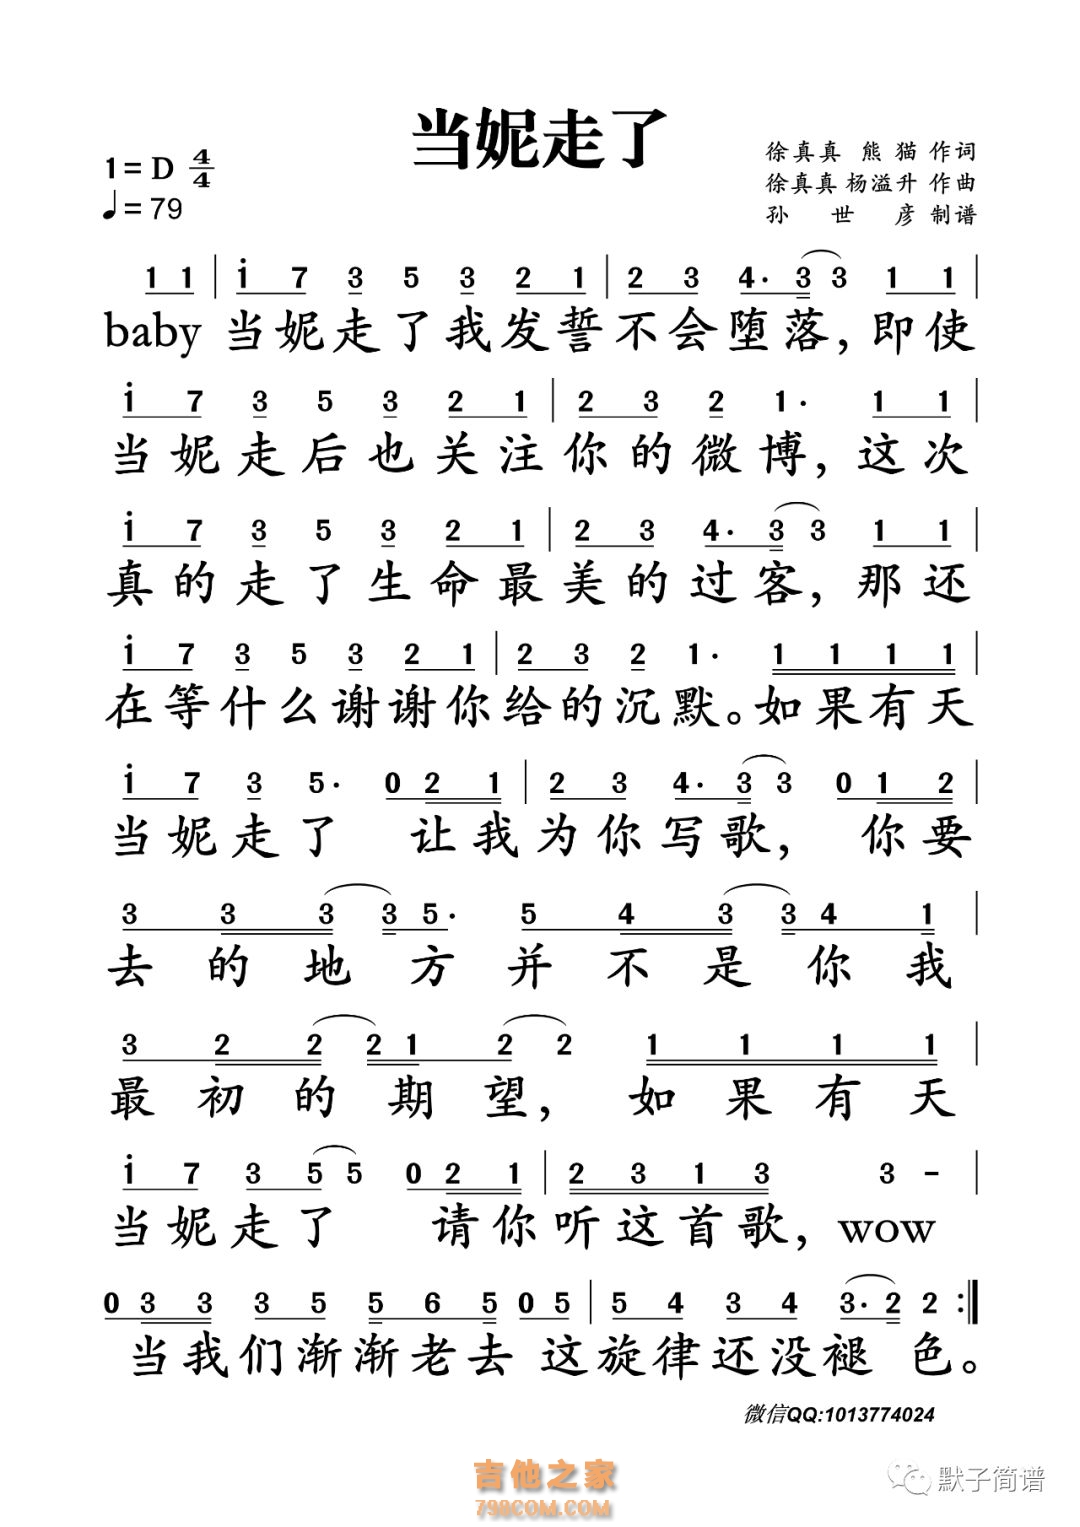 当妮走了
1 = D 4/4
♩= 79
徐真真 熊 猫 作词
徐真真 杨溢升 作曲
孙 世 彦 制谱
1 1 | i 7 3 5 3 2 1 | 2 3 4· 3 3 1 1 |
baby 当妮走了我发誓不会堕落，即使
i 7 3 5 3 2 1 | 2 3 2 1· 1 1 |
当妮走后也关注你的微博，这次
i 7 3 5 3 2 1 | 2 3 4· 3 3 1 1 |
真的走了生命最美的过客，那还
i 7 3 5 3 2 1 | 2 3 2 1· 1 1 1 1 |
在等什么谢谢你给的沉默。如果有天
i 7 3 5· 0 2 1 | 2 3 4· 3 3 0 1 2 |
当妮走了 让我为你写歌， 你要
3 3 3 3 5· 5 4 3 3 4 1 |
去的地方并不是你我
3 2 2 2 1 2 2 1 1 1 1 |
最初的期望，如果有天
i 7 3 5 5 0 2 1 | 2 3 1 3 3 - |
当妮走了 请你听这首歌，wow
0 3 3 3 5 5 6 5 0 5 | 5 4 3 4 3· 2 2 :|
当我们渐渐老去 这旋律还没褪色。
微信QQ:1013774024
吉他之家
798COM.COM
默子简谱